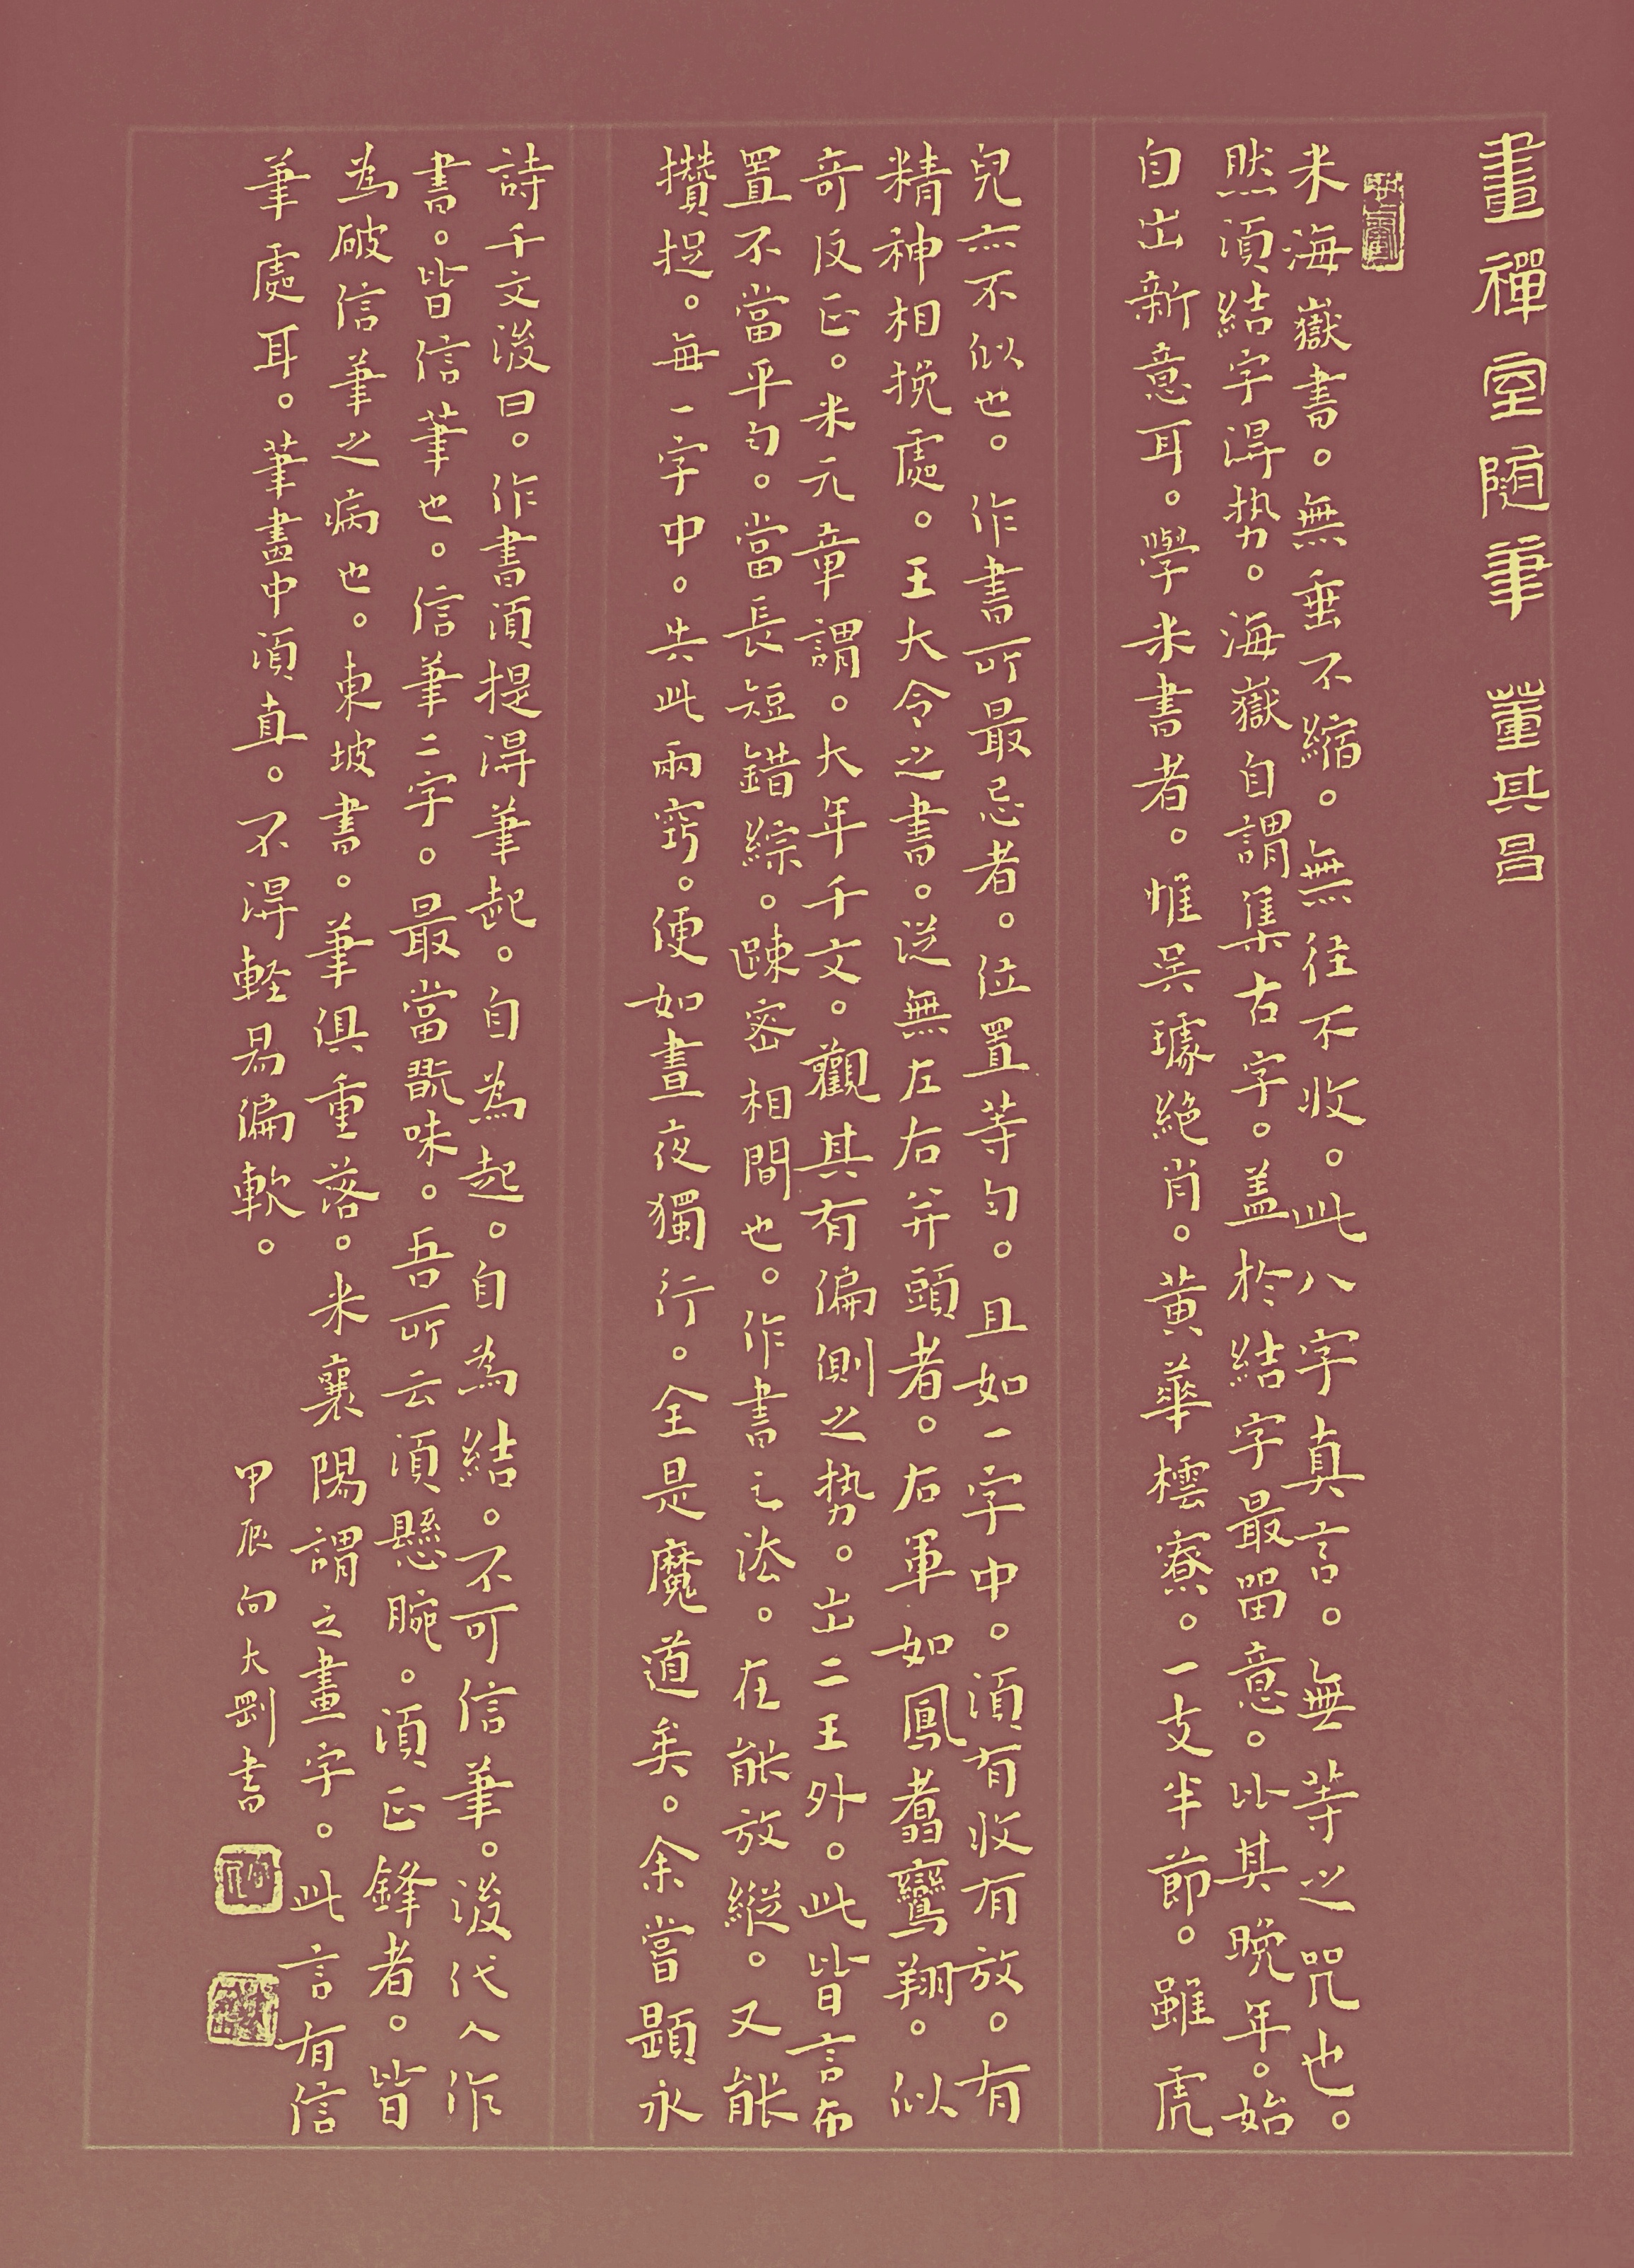 畫禪室隨筆 董其昌
米海嶽書。無垂不縮。無往不收。此八字真言。無等之咒也。
然須結字得勢。海嶽自謂集古字。盖於結字最留意。比其晚年。始
自出新意耳。學米書者。惟吳璩絕肖。黃華樗寮。一支半節。雖虎
兒亦不似也。作書所最忌者。位置等勻。且如一字中。須有收有放。有
精神相挽處。王大令之書。從無左右并頭者。右軍如鳳翥鸞翔。似
奇反正。米元章謂。大年千文。觀其有偏側之勢。出二王外。此皆言布
置不當平勻。當長短錯綜。踈密相間也。作書之法。在能放縱。又能
攢捉。每一字中。失此兩竅。便如晝夜獨行。全是魔道矣。余嘗題永
詩千文後曰。作書須提得筆起。自為起。自為結。不可信筆。後代人作
書。皆信筆也。信筆二字。最當翫味。吾所云須懸腕。須正鋒者。皆
為破信筆之病也。東坡書。筆俱重落。米襄陽謂之畫字。此言有信
筆處耳。筆畫中須直。不得軽易偏軟。
甲辰向大剛書